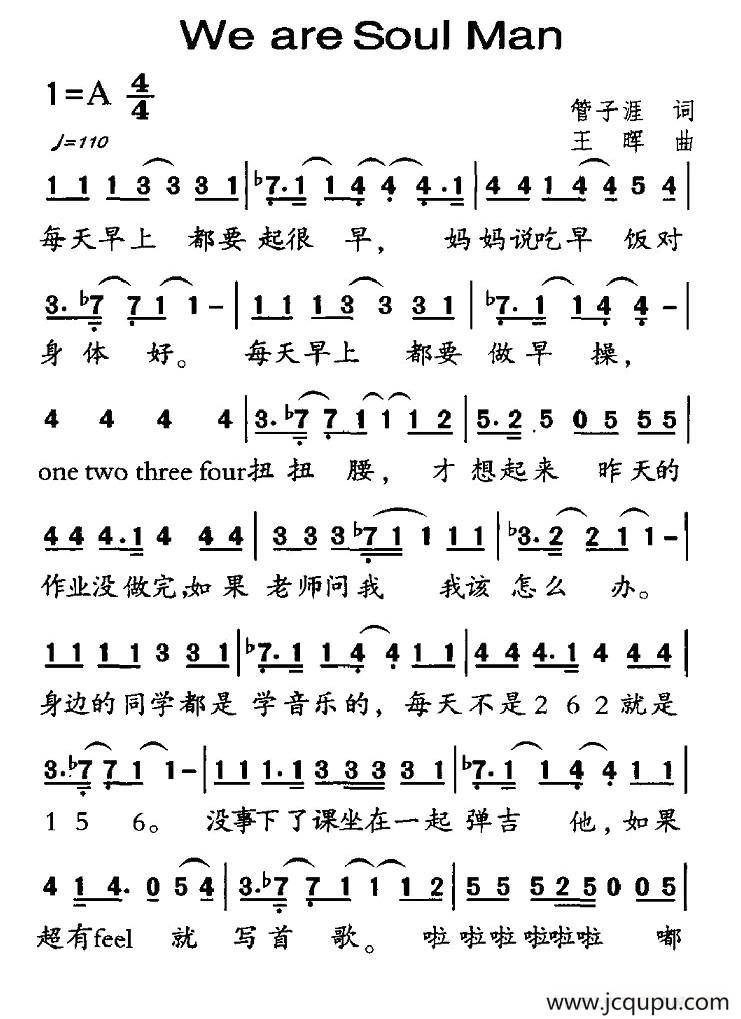 We are Soul Man
1=A 4/4
♩=110
管子涯 词
王 晖 曲
1 1 1 3 3 3 3 1 | ♭7. 1 1 4 4 4. 1 | 4 4 1 4 4 5 4 |
每天早上 都要起很 早, 妈妈说吃早 饭对
3. ♭7 7 1 1 - | 1 1 1 3 3 3 3 1 | ♭7. 1 1 4 4 - |
身 体 好。 每天早上 都要 做早 操,
4 4 4 4 | 3. ♭7 7 1 1 1 2 | 5. 2 5 0 5 5 5 |
one two three four扭扭 腰, 才想起来 昨天的
4 4 4. 1 4 4 4 | 3 3 3 ♭7 1 1 1 1 | ♭3. 2 2 1 1 - |
作业没做完,如果 老师问我 我该 怎么 办。
1 1 1 1 3 3 3 1 | ♭7. 1 1 4 4 1 1 | 4 4 4. 1 4 4 4 |
身边的同学都是 学音乐的, 每天不是2 6 2就是
3. ♭7 7 1 1 - | 1 1 1. 1 3 3 3 3 1 | ♭7. 1 1 4 4 1 1 |
1 5 6。 没事下了课坐在一起 弹吉 他,如果
4 1 4. 0 5 4 | 3. ♭7 7 1 1 1 2 | 5 5 5 2 5 0 0 5 |
超有feel 就 写首 歌。 啦 啦啦 啦啦啦 嘟
www.jcqupu.com